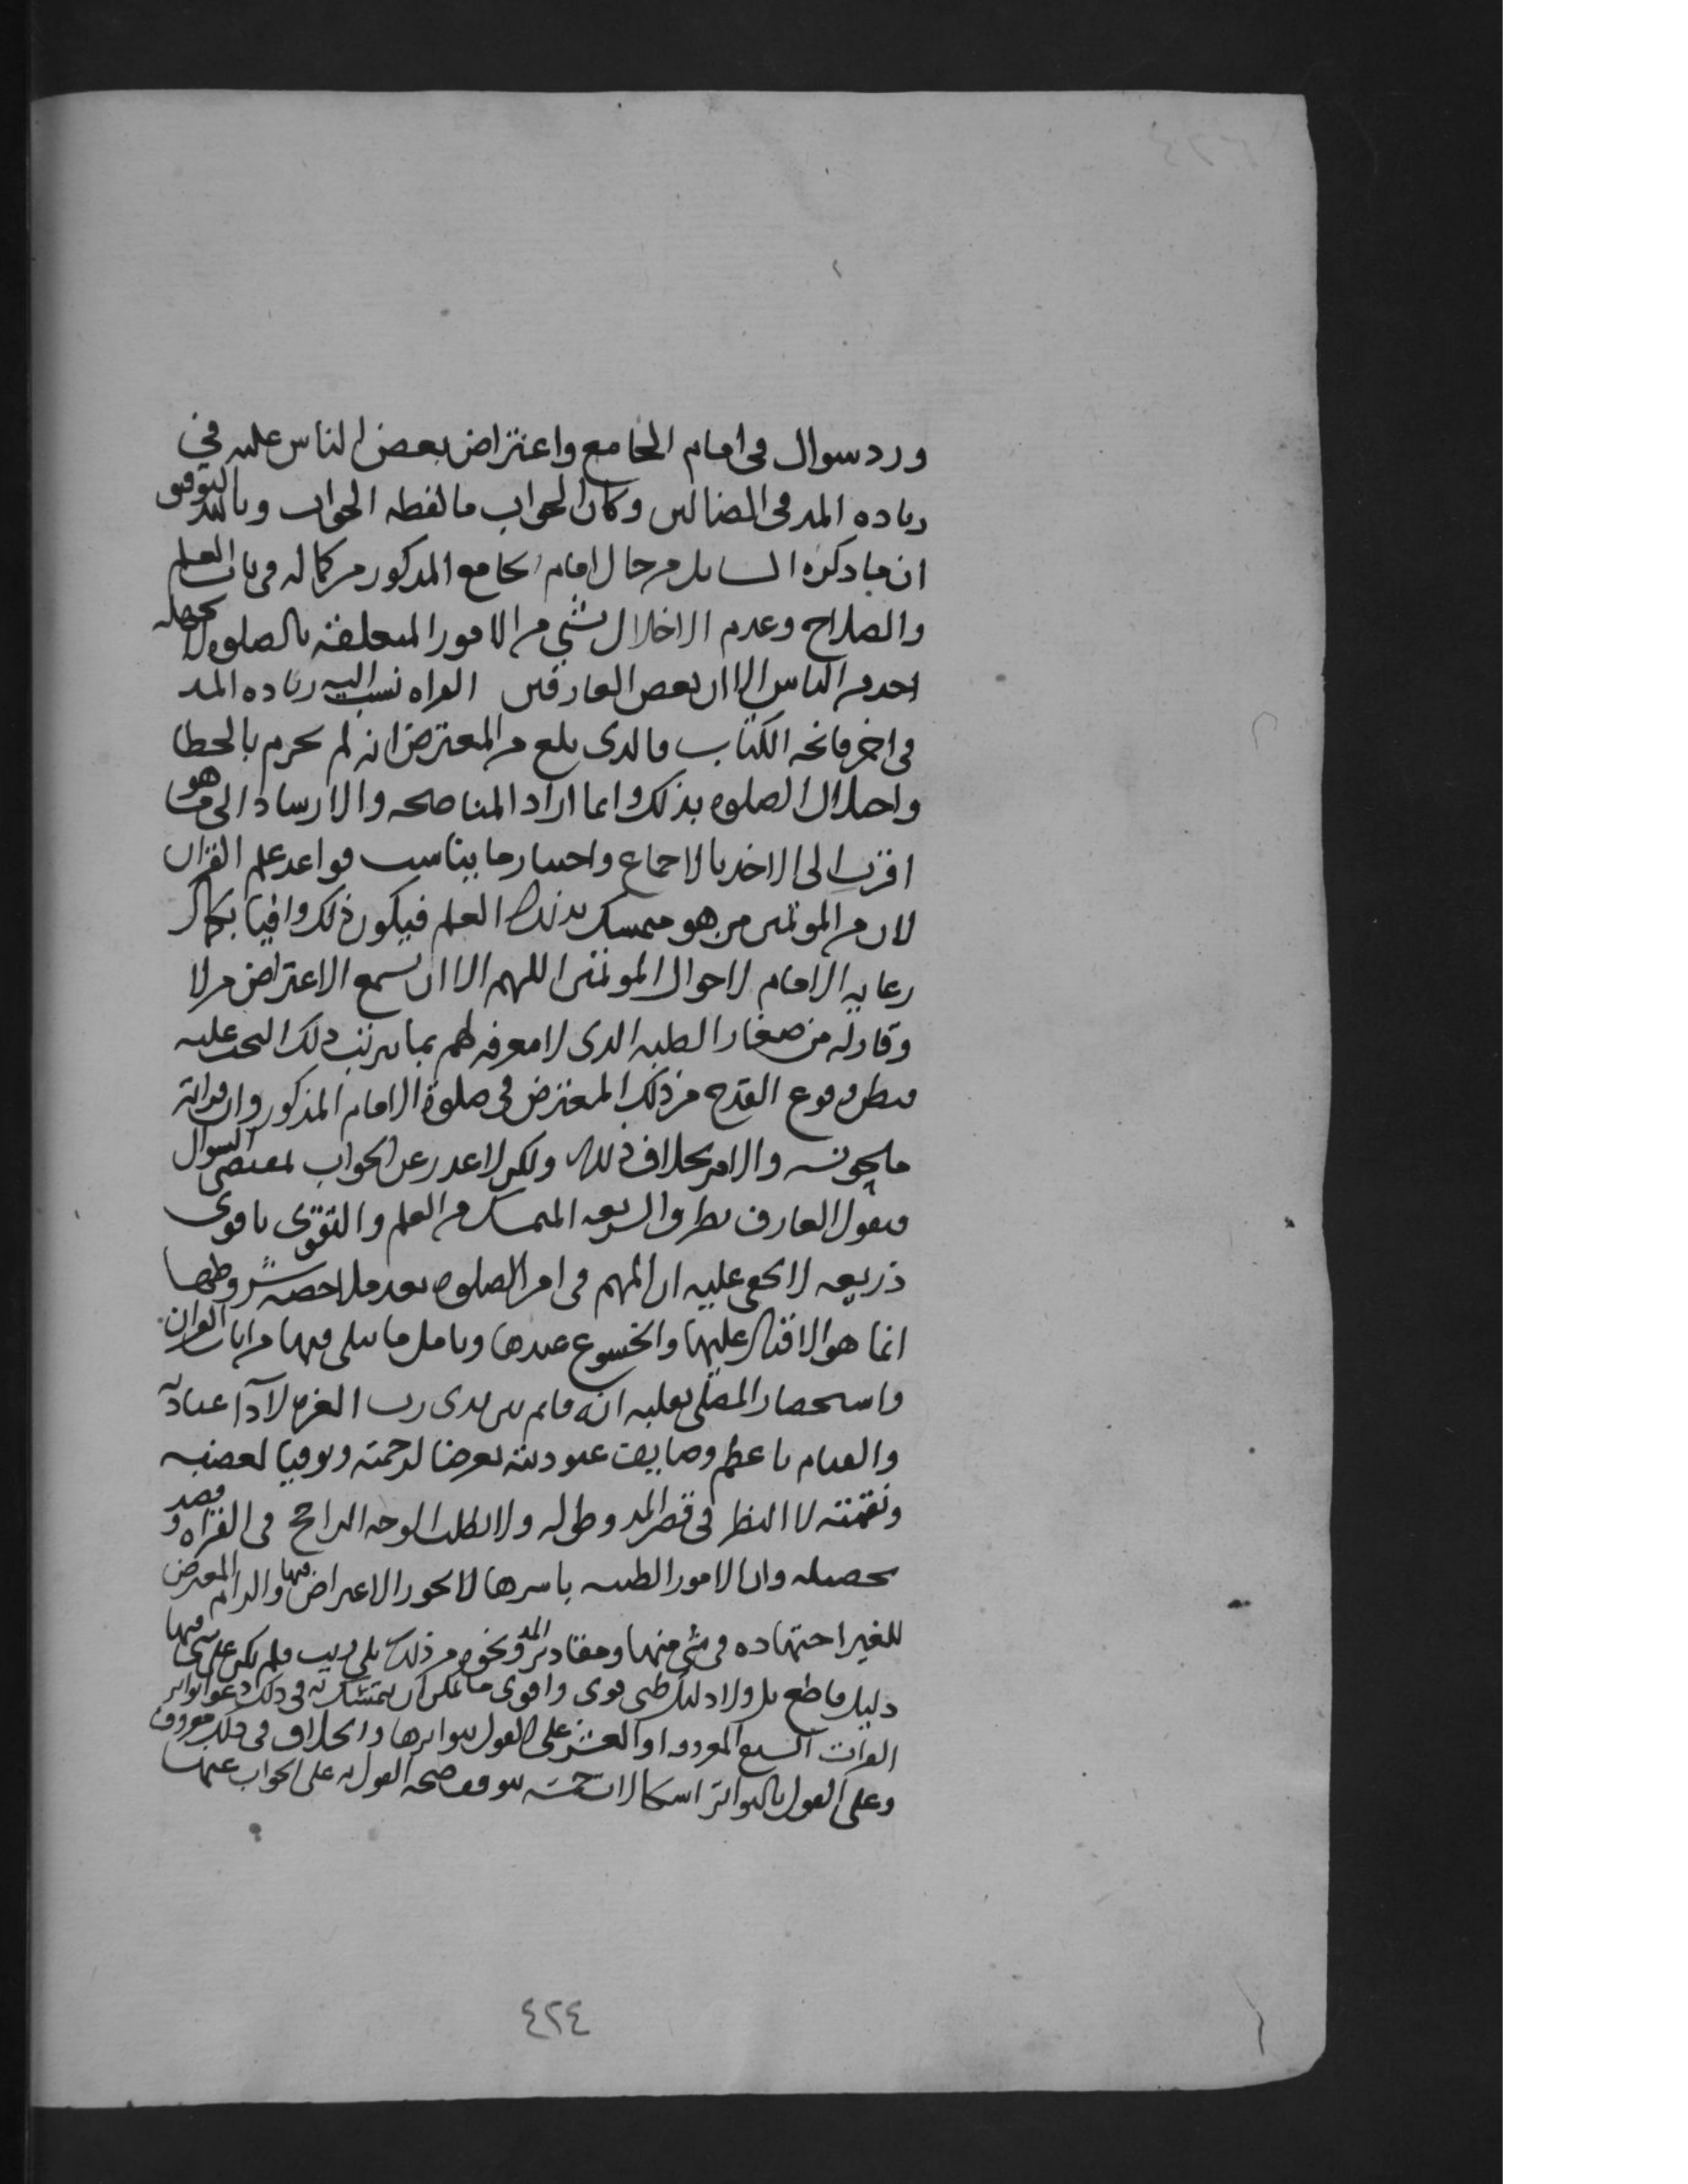 ورد سوال في امام الجامع واعتراض بعض الناس عليه في
زياده المد في الضالين وكان الجواب ما لفظه الجواب وبالله التوفيق
ان ما ذكره السايل من حال امام الجامع المذكور من كماله في باب العلم
والصلاح وعدم الاخلال بشي من الامور المتعلقة بالصلوه لا يجهله
احد من الناس الا ان بعض العارفين القراه نسب اليه زياده المد
في اخر فاتحه الكتاب فالذي بلغ من المعترض انه لم يجزم بالخطا
واختلال الصلوه بذلك وانما اراد المناصحه والارشاد الى ما هو
اقرب الى الاخذ بالاجماع واختيار ما يناسب قواعد علم القران
لان من الموتمين من هو متمسك بذلك العلم فيكون ذلك وافيا بكمال
رعايه الامام لاحوال الموتمين اللهم الا ان يسمع الاعتراض من لا
وقار له من صغار الطلبه الذي لا معرفه لهم بما يترتب ذلك البحث عليه
فيظن وقوع القدح من ذلك المعترض في صلوة الامام المذكور وان قراته
ملحونه والامر بخلاف ذلك ولكن لا عذر عن الجواب لمقتضى السوال
فنقول العارف بطريق الشريعه المتمسك من العلم والتقوى باقوى
ذريعه لا يخفى عليه ان المهم في امر الصلوه بعد ملاحظه شروطها
انما هو الاقبال عليها والخشوع عندها وتامل ما يتلى فيها من ايات القران
واستحضار المصلي بقلبه انه قايم بين يدي رب العزه لادآ عبادته
والقيام باعظم وظايف عبوديته تعرضا لرحمته وتوقيا لغضبه
ونقمته لا النظر في قصر المد وطوله ولا تطلب الوجه الراجح في القراه وقصد
تحصيله وان الامور الظنيه باسرها لا يجوز الاعتراض فيها والزام المعترض
للغير اجتهاده في شي منها ومقادير المد ونحوه من ذلك بلى ريب فلم يكن على شي منها
دليل قاطع بل ولا دليل ظني قوي واقوى ما يمكن ان يتمسك به في ذلك دعوا تواتر
القرات السبع المعروفه او العشر على القول بتواترها والخلاف في ذلك معروف
وعلى القول بالتواتر اشكالات جمة يتوقف صحه القول به على الجواب عنها
٤٢٤